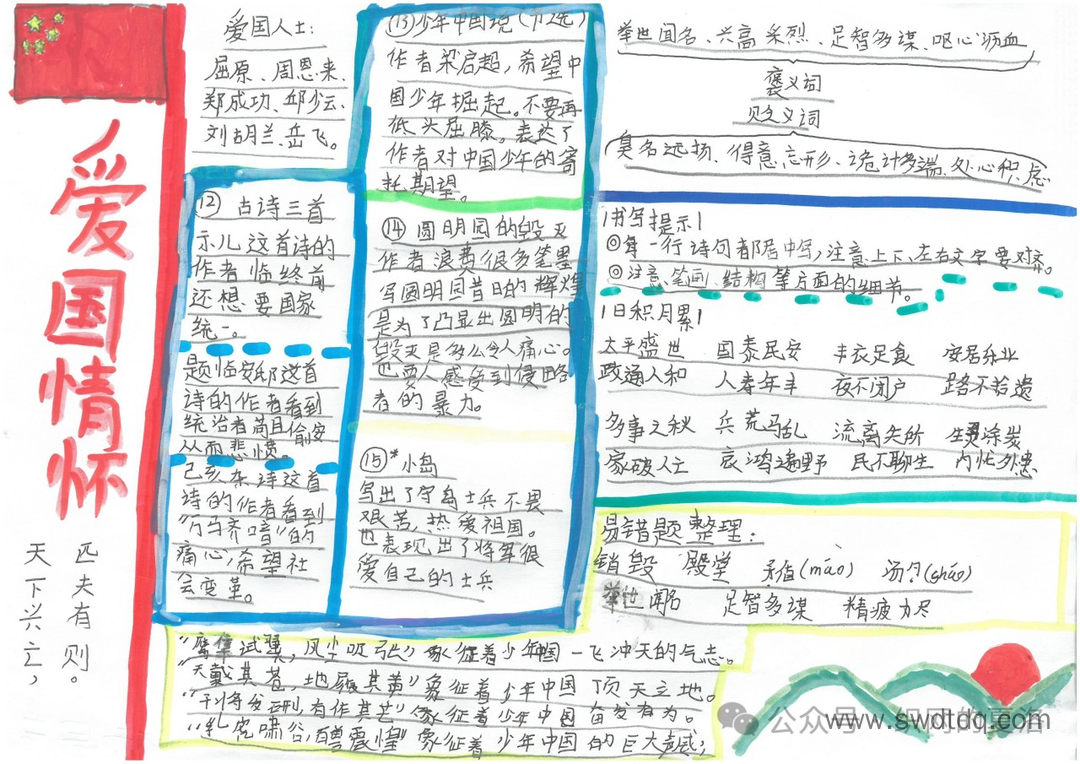 爱国情怀
天下兴亡，
匹夫有则。
爱国人士：
屈原、周恩来、
郑成功、邱少云、
刘胡兰、岳飞。
⑫ 古诗三首
示儿这首诗的
作者临终前
还想要国家
统一。
题临安邸这首
诗的作者看到
统治者苟且偷安
从而悲愤。
己亥杂诗这首
诗的作者看到
"万马齐喑"的
痛心，希望社
会变革。
⑬少年中国说（节选）
作者梁启超，希望中
国少年掘起。不要再
低头屈膝。表达了
作者对中国少年的寄
托期望。
⑭ 圆明园的毁灭
作者浪费很多笔墨
写圆明园昔日的辉煌
是为了凸显出圆明的
毁灭是多么令人痛心。
也要人感受到侵略
者的暴力。
⑮*小岛
写出了守岛士兵不畏
艰苦，热爱祖国。
也表现出了将军很
爱自己的士兵
举世闻名、兴高采烈、足智多谋、呕心沥血
褒义词
贬义词
臭名远扬、得意忘形、诡计多端、处心积虑
书写提示
◎每一行诗句都居中写，注意上下、左右文字要对齐。
◎注意笔画、结构等方面的细节。
日积月累
太平盛世 国泰民安 丰衣足食 安居乐业
政通人和 人寿年丰 夜不闭户 路不拾遗
多事之秋 兵荒马乱 流离失所 生灵涂炭
家破人亡 哀鸿遍野 民不聊生 内忧外患
易错题整理：
销毁 殿堂 矛盾(máo)
举世闻名 足智多谋 精疲力尽
"鹰隼试翼，风尘吸张"象征着少年中国一飞冲天的气志。
"天戴其苍，地履其黄"象征着少年中国顶天立地。
"干将发硎，有作其芒"象征着少年中国奋发有为。
公众号
www.swdtdq.com